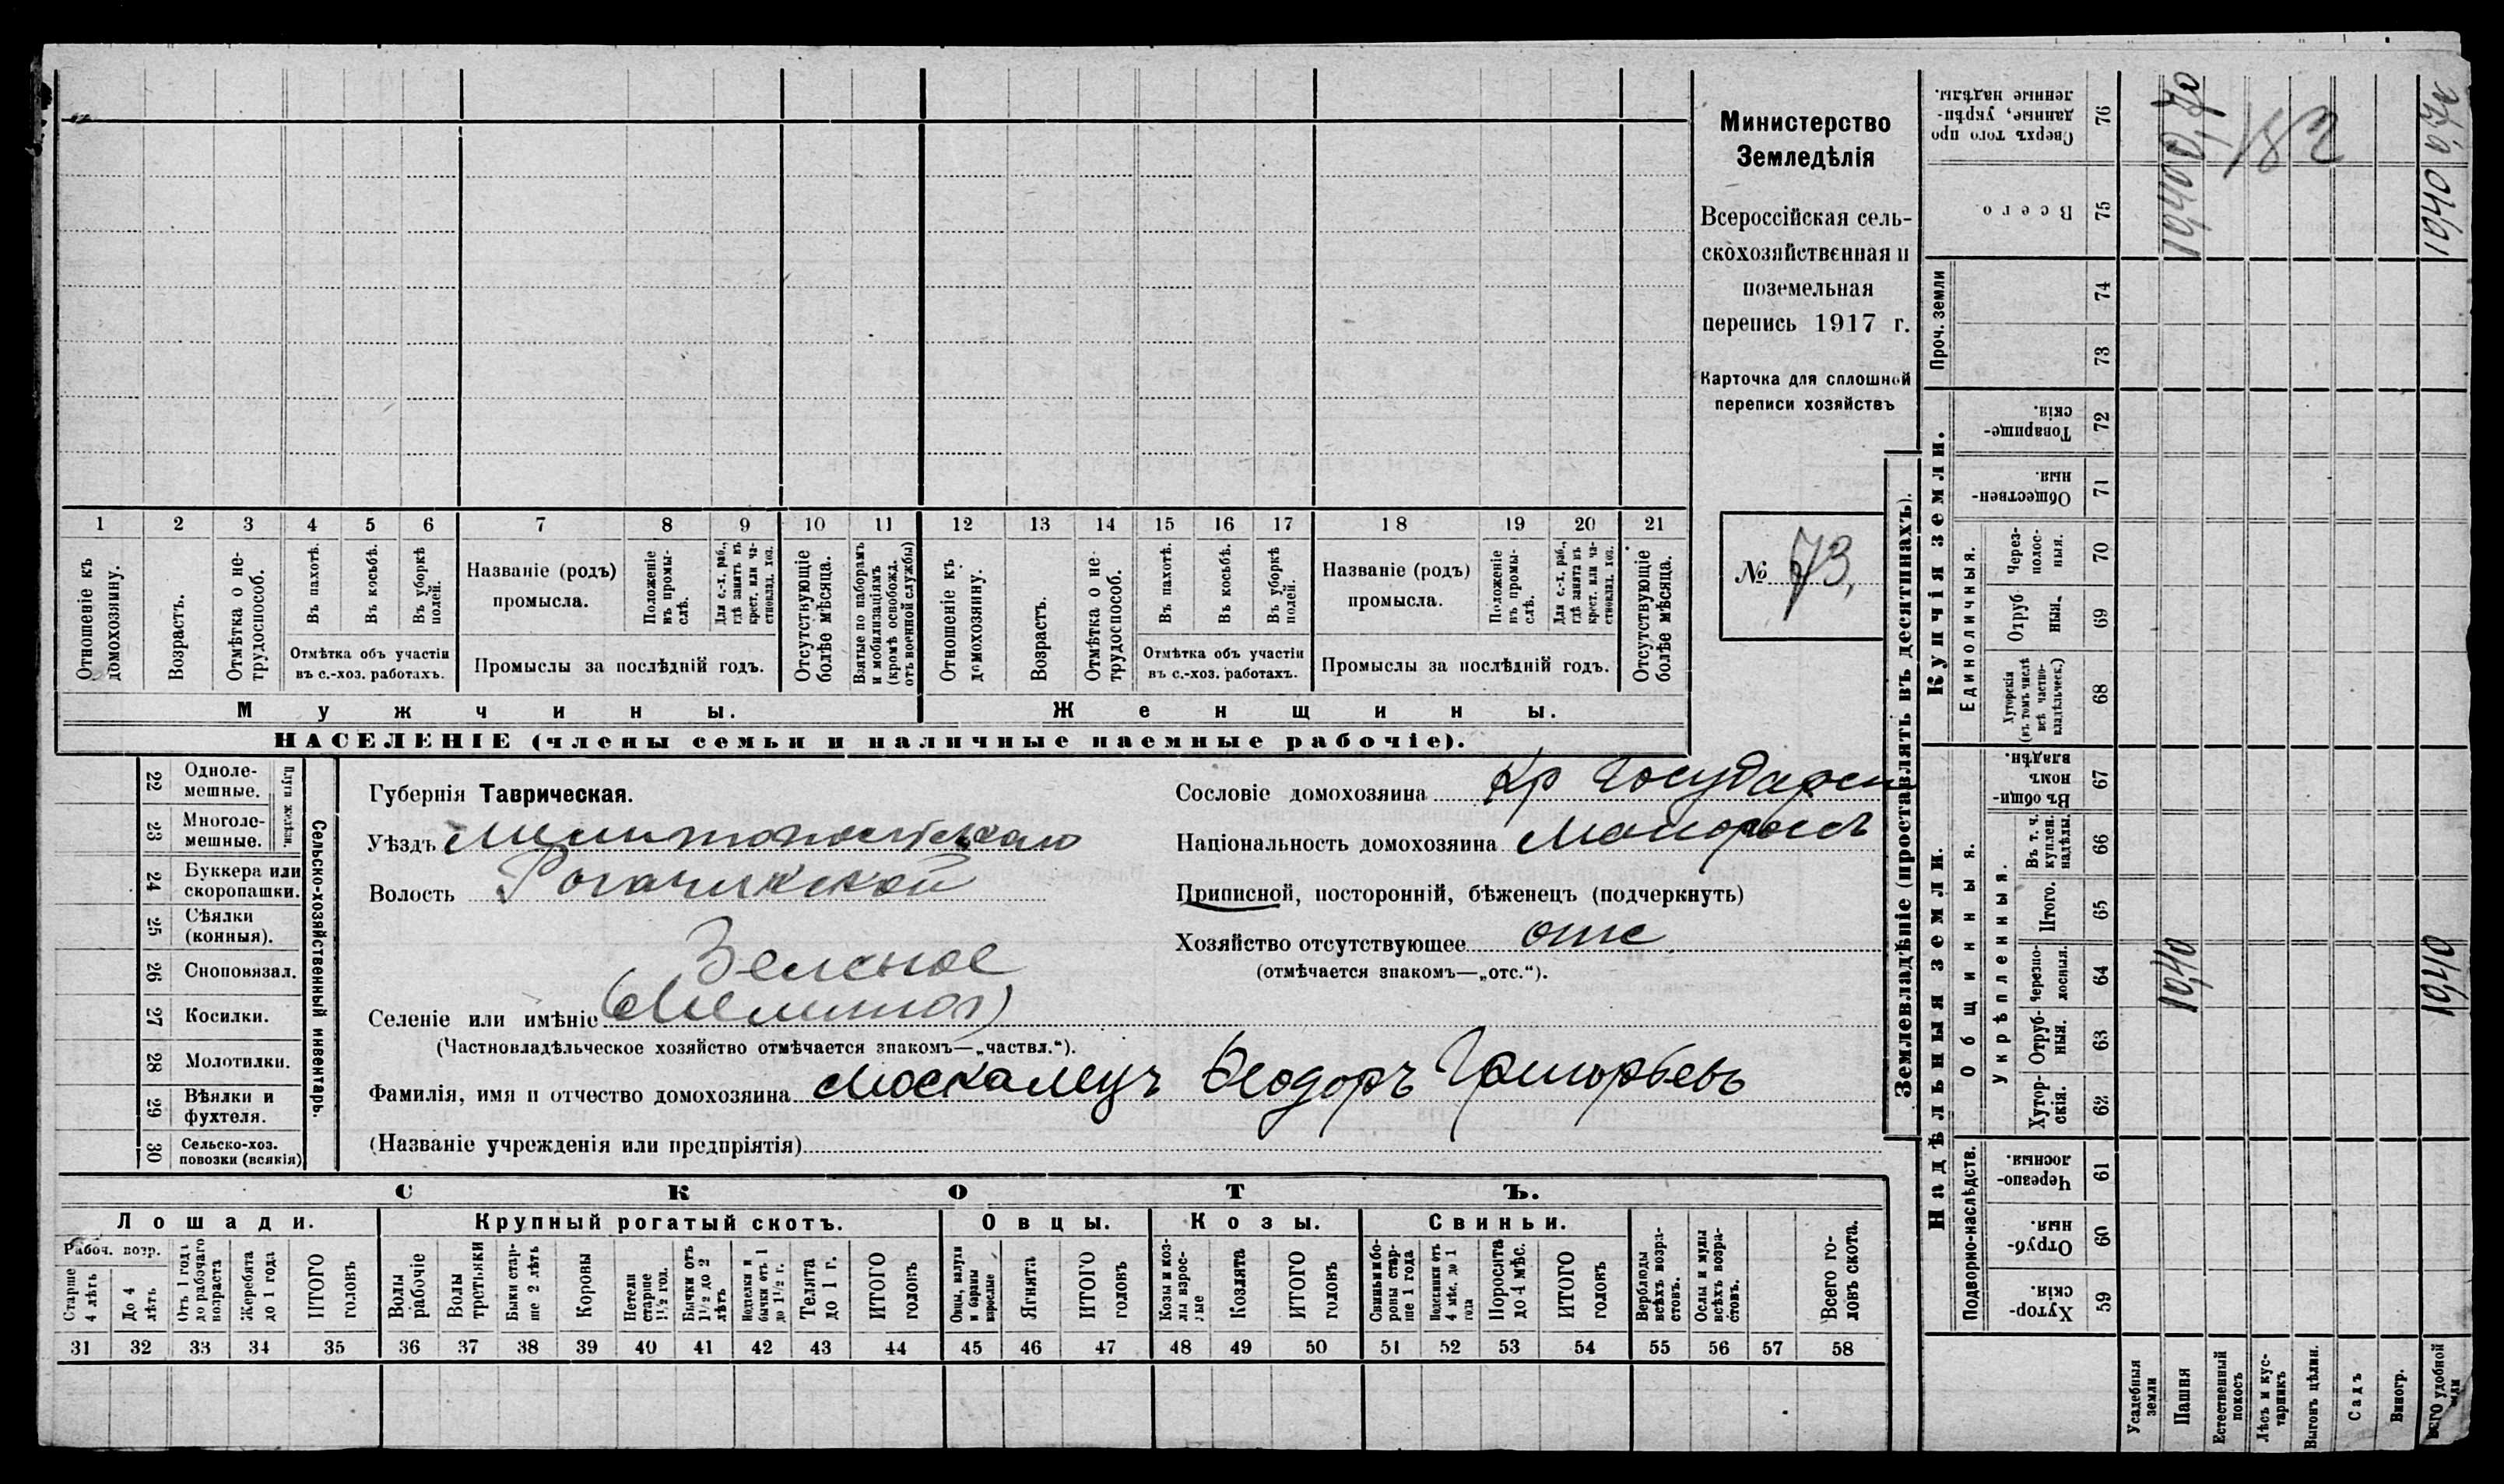 Министерство
Земледѣлія
Всероссійская сель-
скохозяйственная и
поземельная
перепись 1917 г.
Карточка для сплошной
переписи хозяйствъ
№ 73,
1 2 3 4 5 6 7 8 9 10 11 12 13 14 15 16 17 18 19 20 21
Отношеніе къ
домохозяину.
Возрастъ.
Отмѣтка о не-
трудоспособ.
Въ пахотѣ.
Въ косьбѣ.
Въ уборкѣ
полей.
Отмѣтка объ участіи
въ с.-хоз. работахъ.
Названіе (родъ)
промысла.
Положеніе
въ промы-
слѣ.
Для с.-х. раб.,
гдѣ занятъ въ
крест. или ча-
стновлад. хоз.
Промыслы за послѣдній годъ.
Отсутствующіе
болѣе мѣсяца.
Взятые по наборамъ
и мобилизаціямъ
(кромѣ освобожд.
отъ военной службы)
Отношеніе къ
домохозяину.
Возрастъ.
Отмѣтка о не-
трудоспособ.
Въ пахотѣ.
Въ косьбѣ.
Въ уборкѣ
полей.
Отмѣтка объ участіи
въ с.-хоз. работахъ.
Названіе (родъ)
промысла.
Положеніе
въ промы-
слѣ.
Для с.-х. раб.,
гдѣ занята въ
крест. или ча-
стновлад. хоз.
Промыслы за послѣдній годъ.
Отсутствующіе
болѣе мѣсяца.
Мужчины.
Женщины.
НАСЕЛЕНІЕ (члены семьи и наличные наемные рабочіе).
22 Одноле-
мешные.
23 Многоле-
мешные.
Плуги желѣзн.
24 Буккера или
скоропашки.
25 Сѣялки
(конныя).
26 Сноповязал.
27 Косилки.
28 Молотилки.
29 Вѣялки и
фухтеля.
30 Сельско-хоз.
повозки (всякія)
Сельско-хозяйственный инвентарь.
Губернія Таврическая.
Уѣздъ Мелитопольскаго
Волость Рогачикской
Зеленое
Селеніе или имѣніе
(Частновладѣльческое хозяйство отмѣчается знакомъ—„частвл.“).
Фамилія, имя и отчество домохозяина Москалецъ Ѳеодоръ Григорьевъ
(Названіе учрежденія или предпріятія)
Сословіе домохозяина Кр Государст
Національность домохозяина Малороссъ
Приписной, посторонній, бѣженецъ (подчеркнуть)
Хозяйство отсутствующее отс
(отмѣчается знакомъ—„отс.“).
СКОТЪ.
Лошади.
Крупный рогатый скотъ.
Овцы.
Козы.
Свиньи.
Рабоч. возр.
Старше
4 лѣтъ
До 4
лѣтъ
Отъ 1 года
до рабочаго
возраста
Жеребята
до 1 года
ИТОГО
головъ
Волы
рабочіе
Волы
третьяки
Быки стар-
ше 2 лѣтъ
Коровы
Нетели
старше
1½ год.
Бычки отъ
1½ до 2
лѣтъ
Подтелки и
бычки отъ 1
до 1½ г.
Телята
до 1 г.
ИТОГО
головъ
Овцы, валухи
и бараны
взрослые
Ягнята
ИТОГО
головъ
Козы и коз-
лы взрос-
лые
Козлята
ИТОГО
головъ
Свиньи и бо-
ровы стар-
ше 1 года
Подсвинки отъ
4 мѣс. до 1
года
Поросята
до 4 мѣс.
ИТОГО
головъ
Верблюды
всѣхъ возра-
стовъ.
Ослы и мулы
всѣхъ возра-
стовъ.
Всего го-
ловъ скота.
31 32 33 34 35 36 37 38 39 40 41 42 43 44 45 46 47 48 49 50 51 52 53 54 55 56 57 58
Землевладѣніе (проставлять въ десятинахъ).
Надѣльныя земли.
Купчія земли.
Проч. земли
Подворно-наслѣдств.
Общинныя.
Укрѣпленныя.
Единоличныя.
Хутор-
скія. 59
Отруб-
ныя. 60
Черезпо-
лосныя. 61
Хутор-
скія. 62
Отруб-
ныя. 63
Черезпо-
лосныя. 64
Итого. 65
Въ т. ч.
куплен.
надѣлы. 66
Въ общин-
номъ
владѣн. 67
Хуторскія
(въ томъ числѣ
всѣ частно-
владѣльческ.) 68
Отруб-
ныя. 69
Через-
полос-
ныя. 70
Обществен-
ныя. 71
Товарище-
скія. 72
73
74
Всего 75
Сверхъ того про
данные, укрѣп-
ленные надѣлы. 76
Усадебныя
земли
Пашня 19,40 19,40 0,70
Естественный
покосъ
Лѣсъ и кус-
тарникъ
Выгонъ цѣлин.
Садъ
Виногр.
всего удобной
земли 19,40 19,40 0,70
182